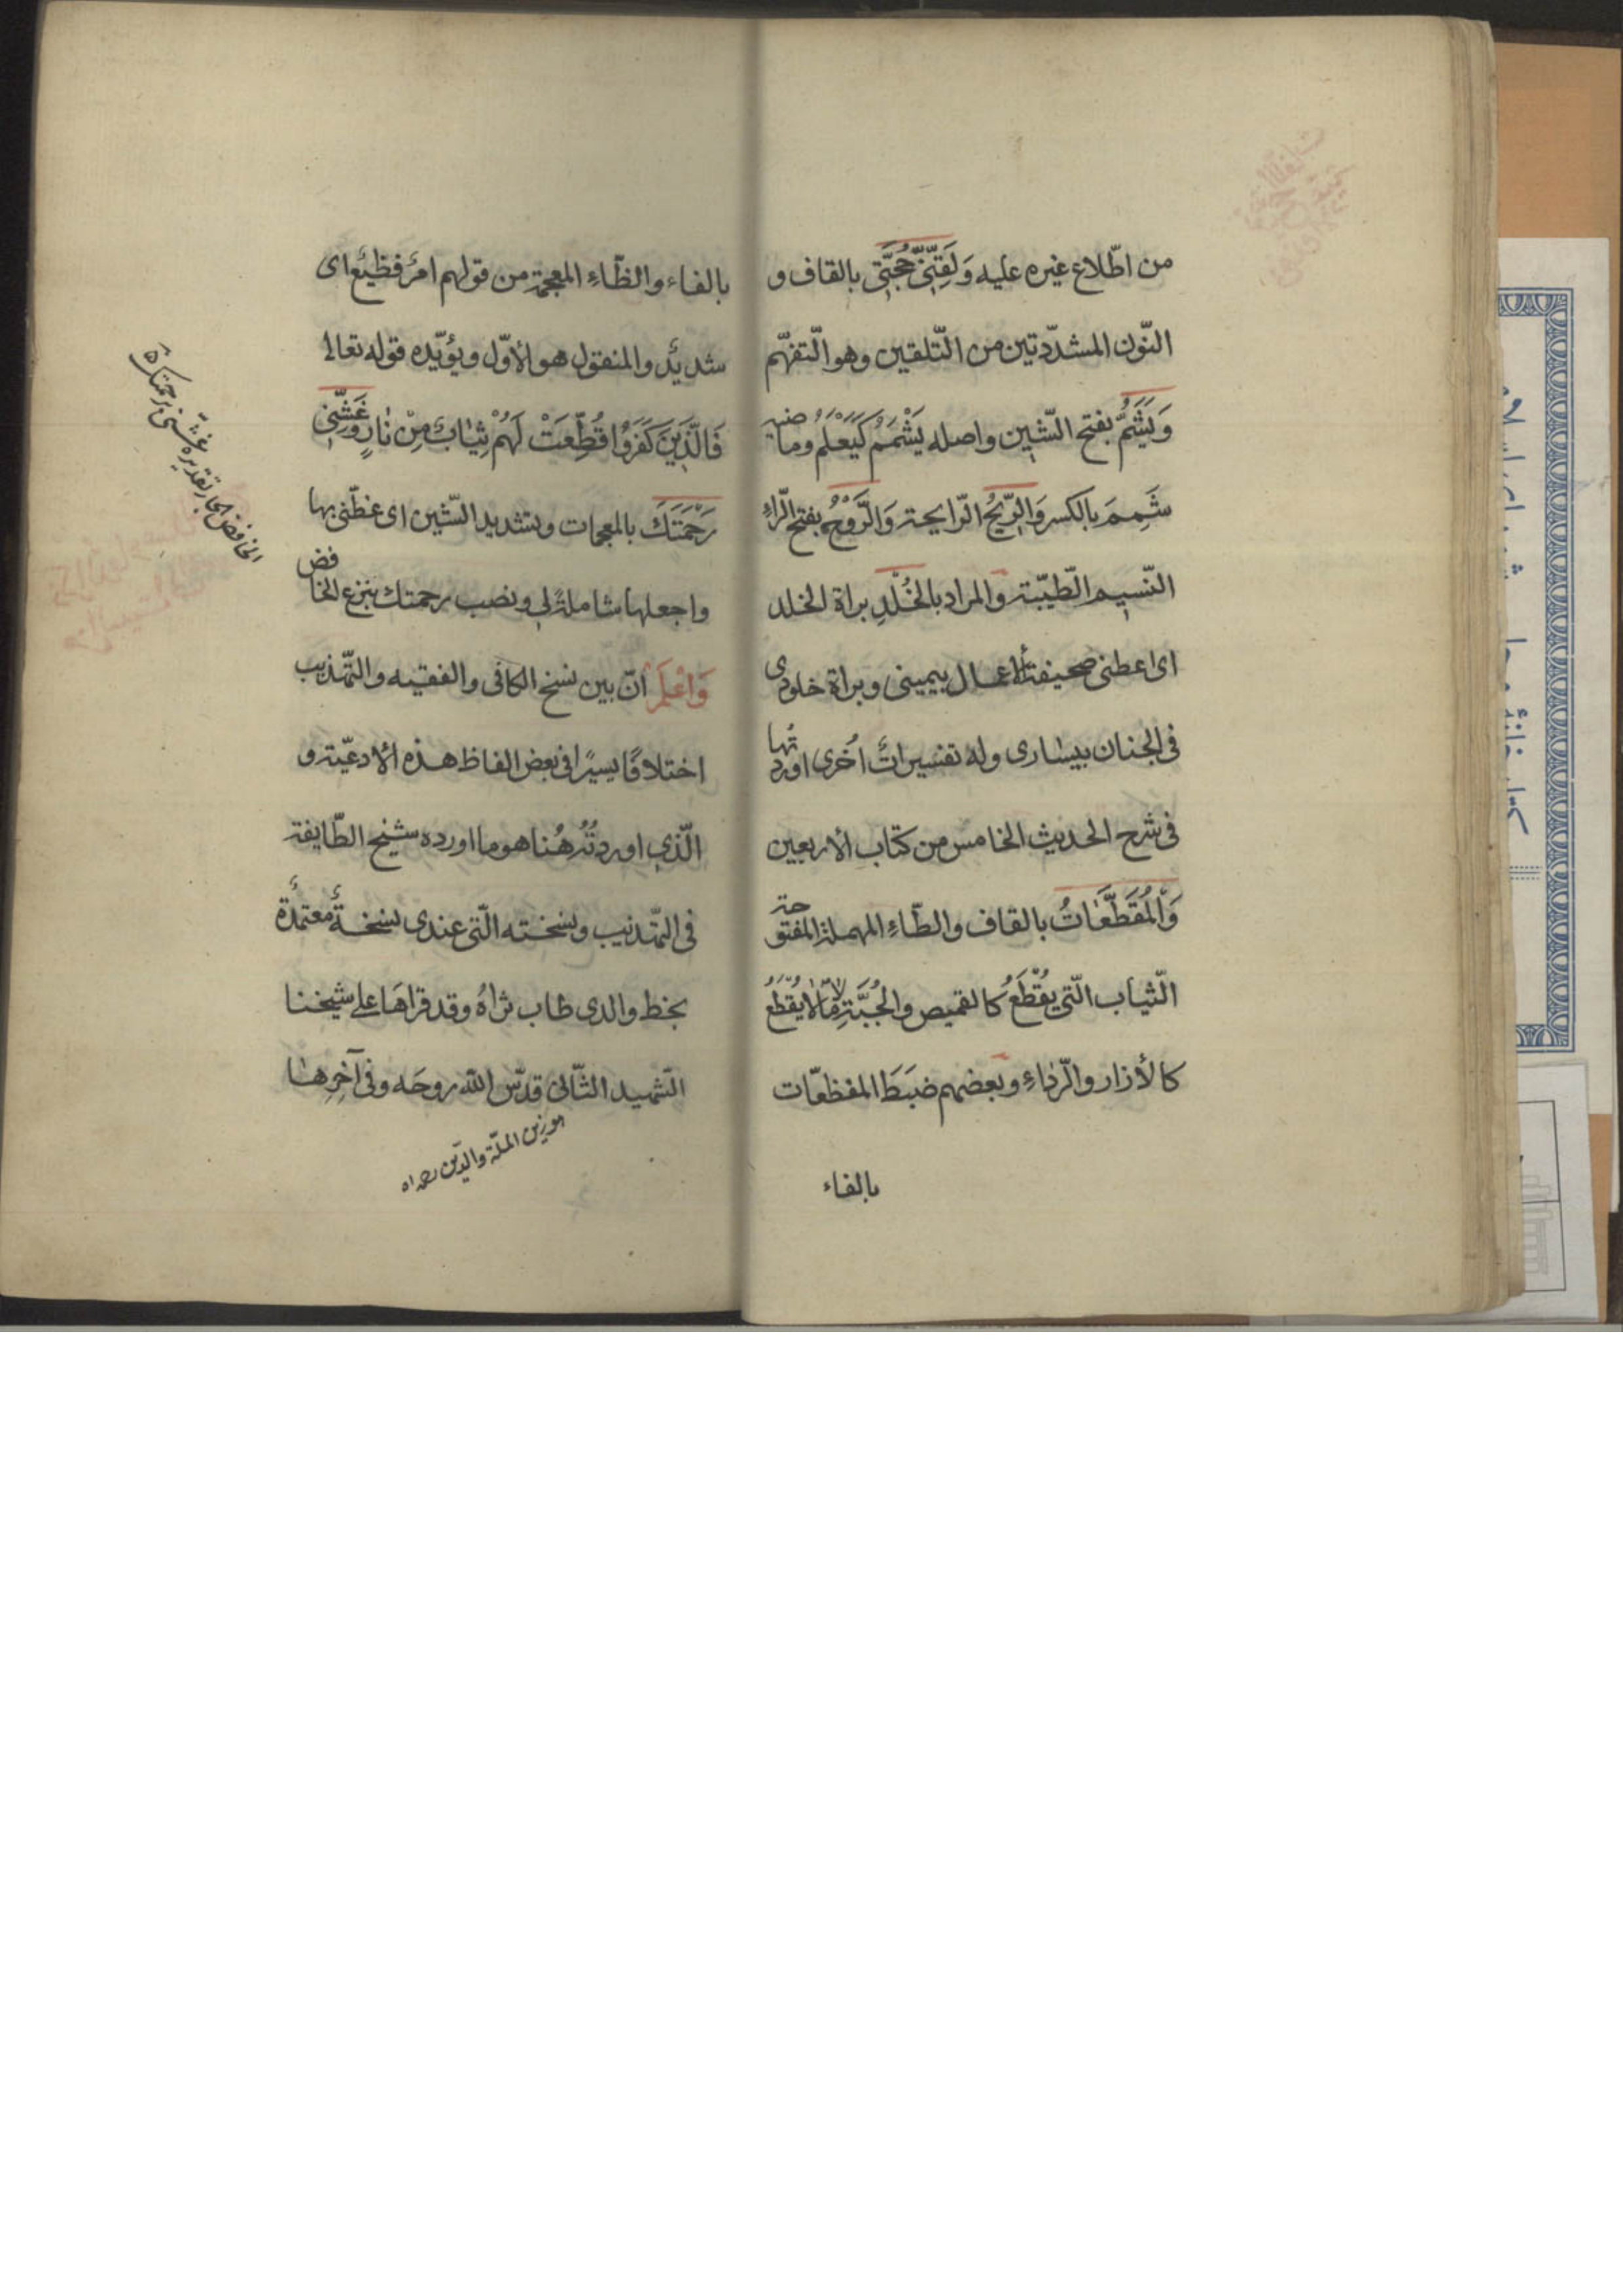 من اطّلاع غيره عليه وَلَقِّنّى حُجَّتى بالقاف و
النّون المشدّدتين من التّلقين وهو التّفهّم
وَيَشَمُّ بفتح الشّين واصله يَشْمَمُ كَيَعْلَمُ وماضيه
شَمِمَ بالكسر وَالرِّيحُ الرّايحة وَالرَّوْحُ بفتح الرّاءِ
النّسيم الطّيّبة والمراد بالخُلْدِ براة الخلد
اى اعطنى صحيفة الأعمال بيمينى وبراة خلودى
فى الجنان بيسارى وله تفسيراتٌ اُخرى اوردتُها
فى شرح الحديث الخامس من كتاب الأربعين
وَالْمُقَطَّعَاتُ بالقاف والطّاءِ المهملة المفتوحة
الثّياب الّتى يُقْطَعُ كالقميص والجُبَّةِ لا مَا لا يُقْطَعُ
كالأزار والرّداءِ وبعضهم ضبَطَ المفظعّات
بالفاء
بالفاء والظّاءِ المعجمة من قولهم امرٌ فظيعٌ اى
شديدٌ والمنقول هو الأوّل ويؤيّده قوله تعالى
فَالَّذِينَ كَفَرُوا قُطِّعَتْ لَهُمْ ثِيَابٌ مِنْ نَارٍ وَغَشِّنى
رَحْمَتَكَ بالمعجمات وبتشديد الشّين اى غطّنى بها
واجعلها شاملةً لى ونصب رحمتك بنزع الخافض
وَاعْلَمْ انّ بين نسخ الكافى والفقيه والتّهذيب
اختلافًا يسيرًا فى بعض الفاظ هذه الأدعيّة و
الّذى اوردتُهُ هُنا هو ما اورده شيخ الطّايفة
فى التّهذيب ونسخته الّتى عندى نسخةٌ معتمدةٌ
بخط والدى طاب ثراهُ وقد قراهَا على شيخنا
الشّهيد الثّانى قدّس الله روحَه وفى آخِرِها
هو زين الملّة والدّين رحمه اه
الخافض الجار تقديره غشّنى برحمتك